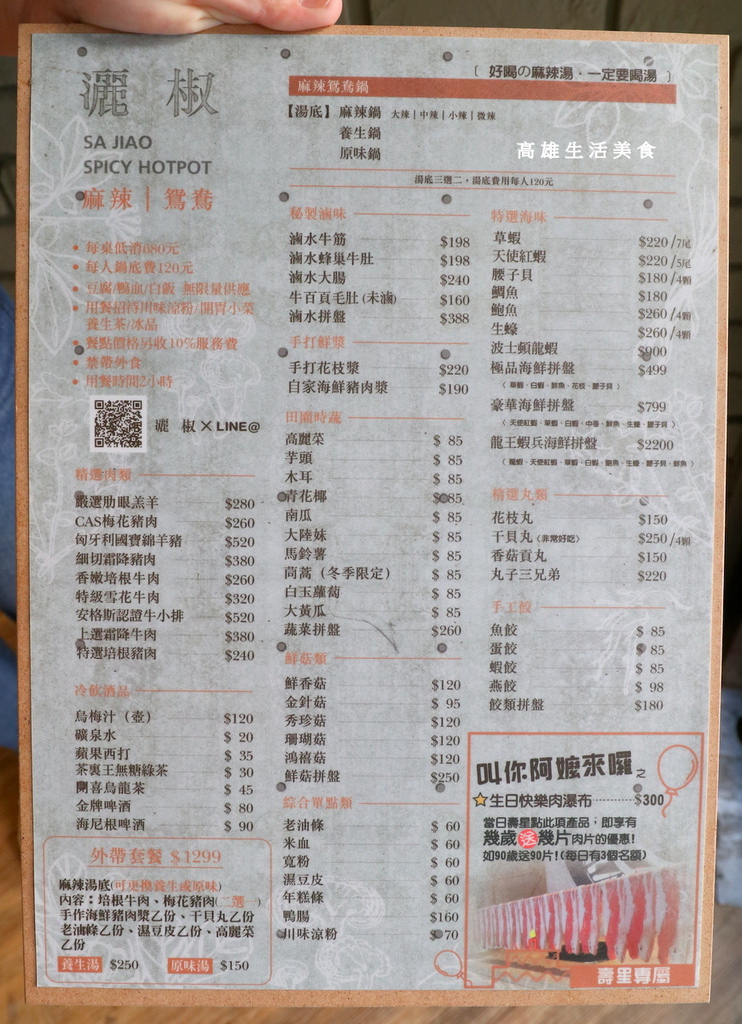 灑 椒
SA JIAO
SPICY HOTPOT
麻辣｜鴛鴦
• 每桌低消680元
• 每人鍋底費120元
• 豆腐/鴨血/白飯 無限量供應
• 用餐招待川味涼粉/開胃小菜
養生茶/冰品
• 餐點價格另收10%服務費
• 禁帶外食
• 用餐時間2小時
灑 椒 X LINE@
精選肉類
嚴選肋眼羔羊 $280
CAS梅花豬肉 $260
匈牙利國寶綿羊豬 $520
細切霜降豬肉 $380
香嫩培根牛肉 $260
特級雪花牛肉 $320
安格斯認證牛小排 $520
上選霜降牛肉 $380
特選培根豬肉 $240
冷飲酒品
烏梅汁（壺） $120
礦泉水 $ 20
蘋果西打 $ 35
茶裏王無糖綠茶 $ 30
開喜烏龍茶 $ 45
金牌啤酒 $ 80
海尼根啤酒 $ 90
外帶套餐 $1299
麻辣湯底(可更換養生或原味)
內容：培根牛肉、梅花豬肉(二選一)
手作海鮮豬肉漿乙份、干貝丸乙份
老油條乙份、濕豆皮乙份、高麗菜
乙份
養生湯 $250 原味湯 $150
〔 好喝の麻辣湯．一定要喝湯 〕
麻辣鴛鴦鍋
【湯底】麻辣鍋 大辣｜中辣｜小辣｜微辣
養生鍋
原味鍋
高雄生活美食
湯底三選二，湯底費用每人120元
秘製滷味
滷水牛筋 $198
滷水蜂巢牛肚 $198
滷水大腸 $240
牛百頁毛肚 (未滷) $160
滷水拼盤 $388
手打鮮漿
手打花枝漿 $220
自家海鮮豬肉漿 $190
田園時蔬
高麗菜 $ 85
芋頭 $ 85
木耳 $ 85
青花椰 $ 85
南瓜 $ 85
大陸妹 $ 85
馬鈴薯 $ 85
茼蒿（冬季限定） $ 85
白玉蘿蔔 $ 85
大黃瓜 $ 85
蔬菜拼盤 $260
鮮菇類
鮮香菇 $120
金針菇 $ 95
秀珍菇 $120
珊瑚菇 $120
鴻禧菇 $120
鮮菇拼盤 $250
綜合單點類
老油條 $ 60
米血 $ 60
寬粉 $ 60
濕豆皮 $ 60
年糕條 $ 60
鴨腸 $160
川味涼粉 $ 70
特選海味
草蝦 $220 /7尾
天使紅蝦 $220 /5尾
腰子貝 $180 /4顆
鯛魚 $180
鮑魚 $260 /4顆
生蠔 $260 /4顆
波士頓龍蝦 $900
極品海鮮拼盤 $499
（ 草蝦、白蝦、鯛魚、花枝、腰子貝 ）
豪華海鮮拼盤 $799
（ 天使紅蝦、草蝦、白蝦、中卷、鯛魚、生蠔、腰子貝 ）
龍王蝦兵海鮮拼盤 $2200
（ 龍蝦、天使紅蝦、草蝦、白蝦、鮑魚、生蠔、腰子貝、鯛魚 ）
精選丸類
花枝丸 $150
干貝丸 (非常好吃) $250 /4顆
香菇貢丸 $150
丸子三兄弟 $220
手工餃
魚餃 $ 85
蛋餃 $ 85
蝦餃 $ 85
燕餃 $ 98
餃類拼盤 $180
叫你阿嬤來囉之
生日快樂肉瀑布 $300
當日壽星點此項產品，即享有
幾歲送幾片肉片的優惠!
如90歲送90片!(每日有3個名額)
壽星專屬